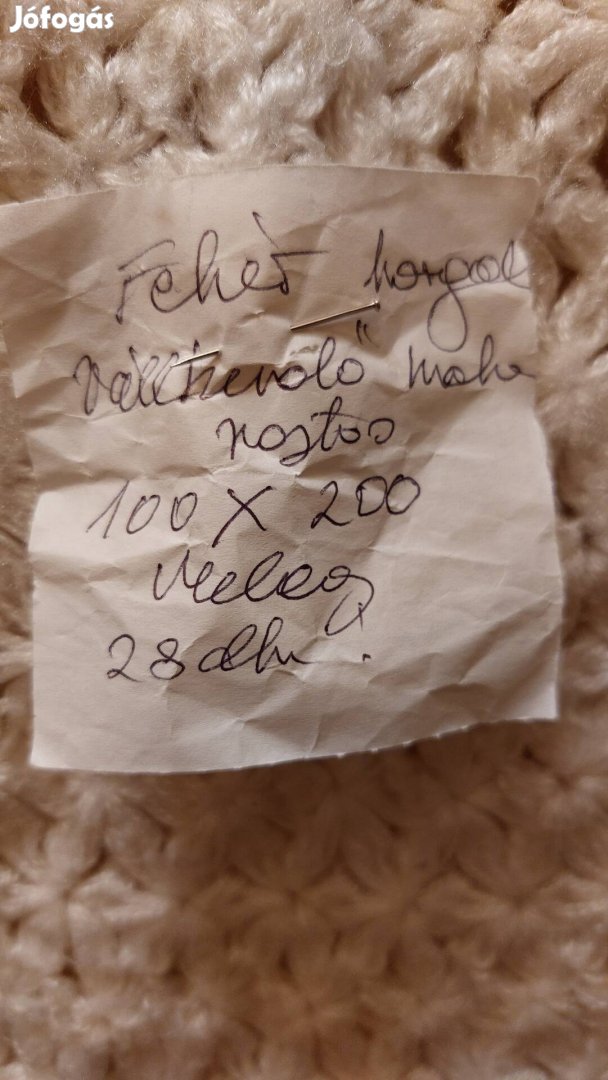 Jófogás
Fehér horgol
Vállkendő
rojtos
100 X 200
Meleg
28 dkg.